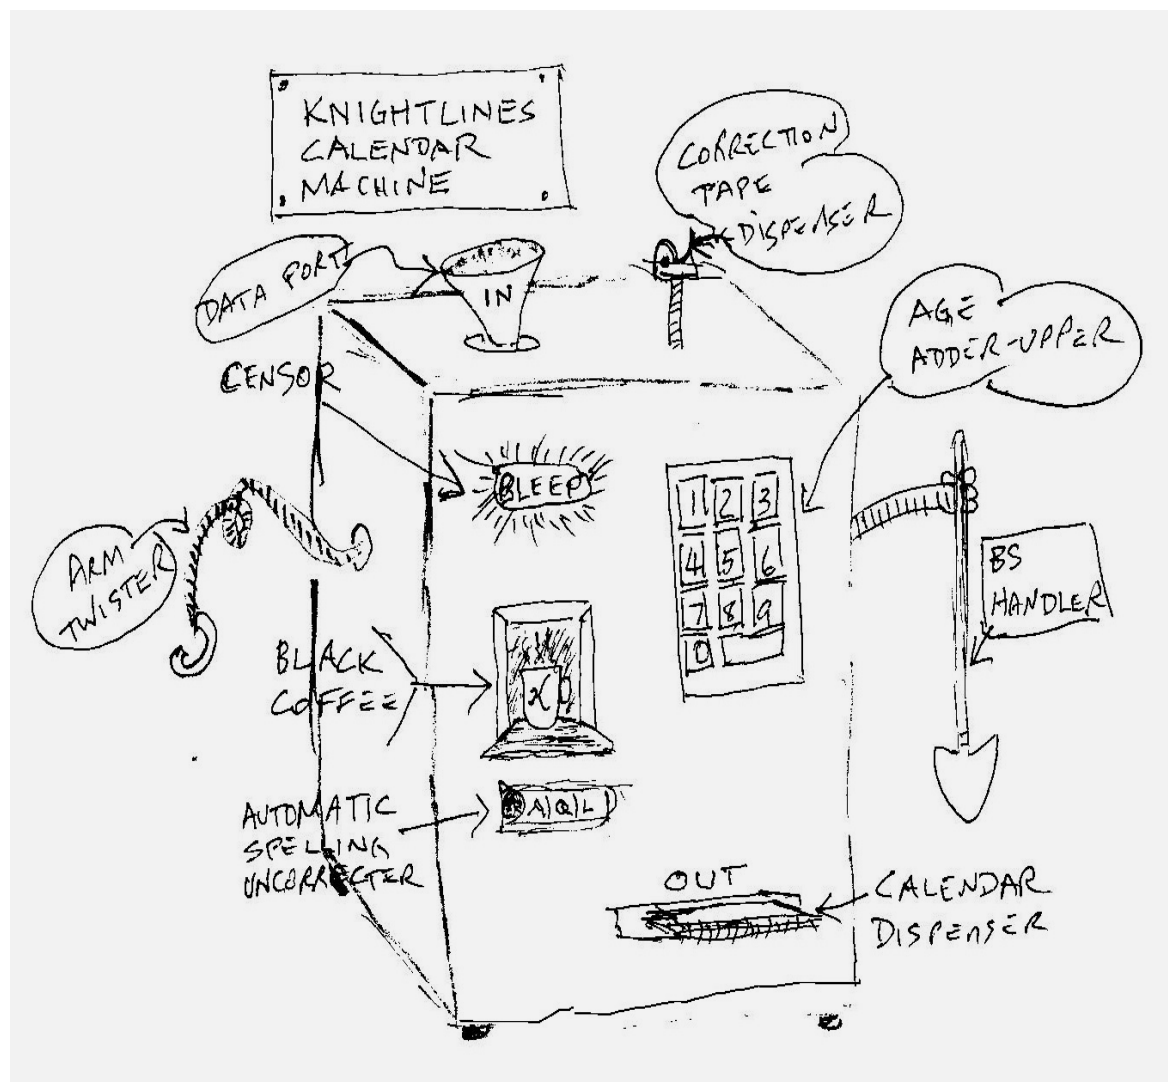 KNIGHTLINES
CALENDAR
MACHINE
CORRECTION
TAPE
DISPENSER
DATA PORT
IN
AGE
ADDER-UPPER
CENSOR
BLEEP
1 2 3
4 5 6
7 8 9
0
ARM
TWISTER
BS
HANDLER
BLACK
COFFEE
AUTOMATIC
SPELLING
UNCORRECTER
A|Q|L
OUT
CALENDAR
DISPENSER